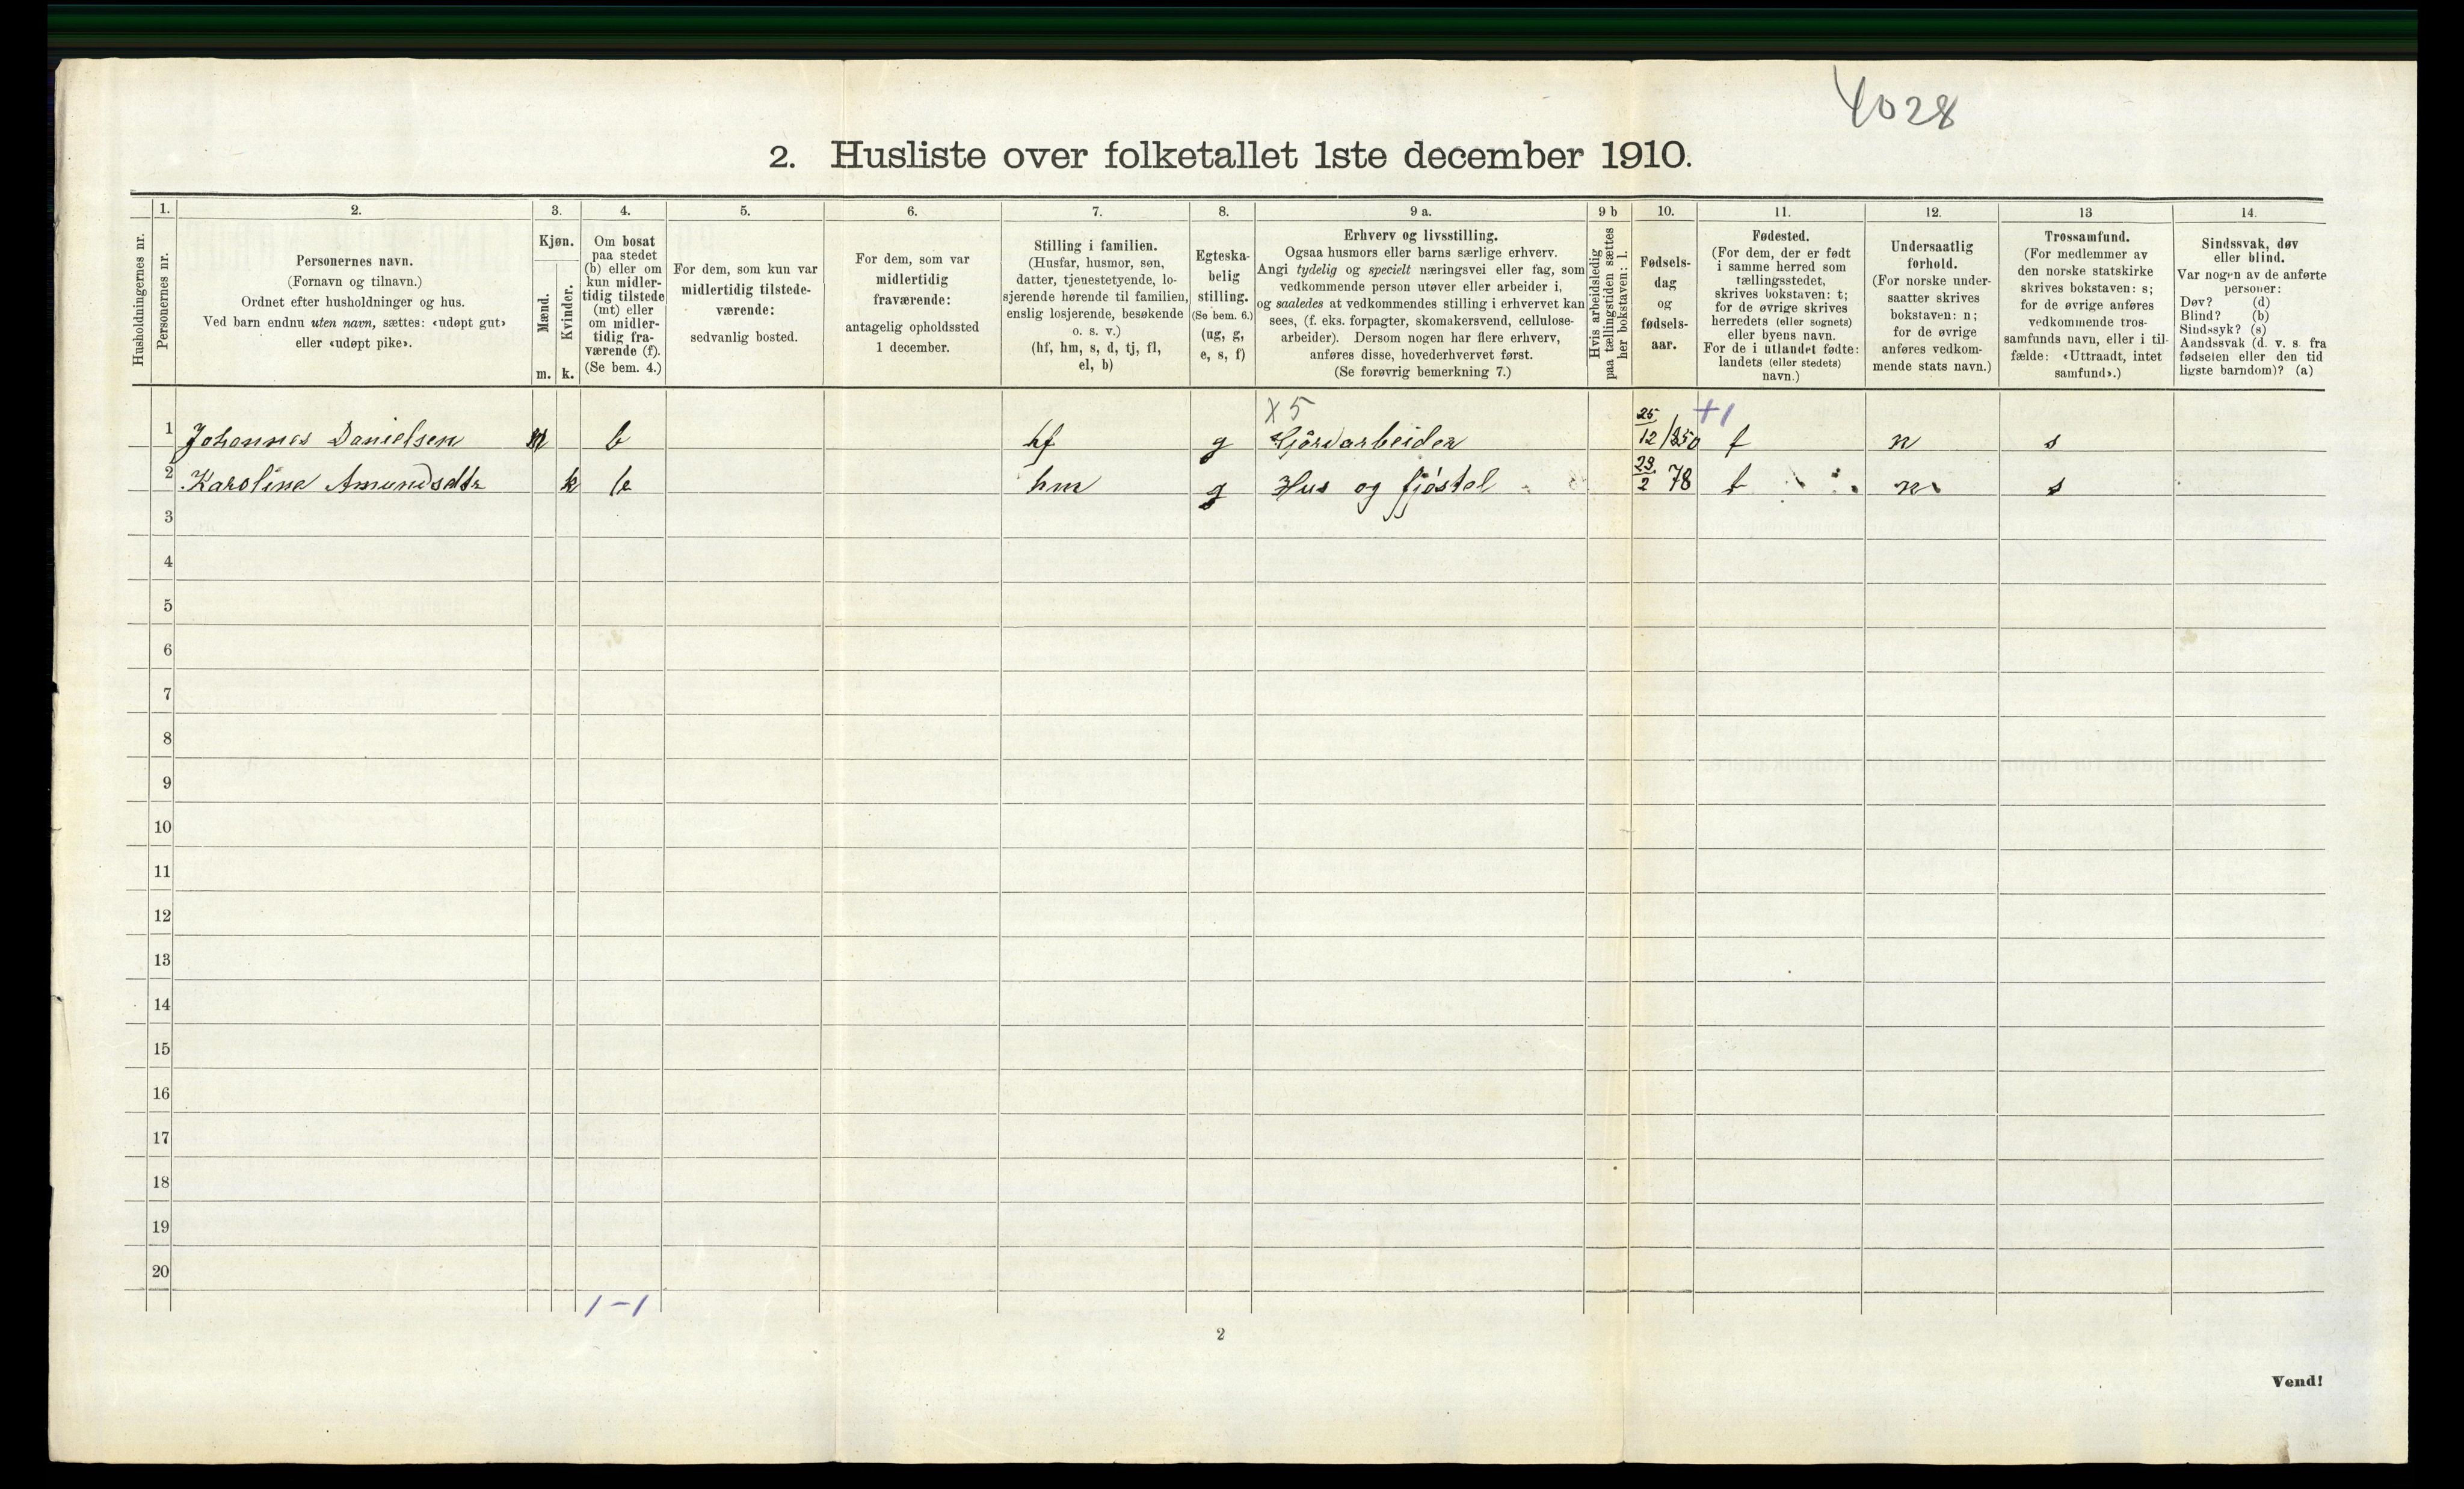 4028
2. Husliste over folketallet 1ste december 1910.
Husholdningernes nr.
1.
Personernes nr.
2.
Personernes navn.
(Fornavn og tilnavn.)
Ordnet efter husholdninger og hus.
Ved barn endnu uten navn, sættes: «udøpt gut»
eller «udøpt pike».
3.
Kjøn.
Mænd.
Kvinder.
m. k.
4.
Om bosat
paa stedet
(b) eller om
kun midler-
tidig tilstede
(mt) eller
om midler-
tidig fra-
værende (f).
(Se bem. 4.)
5.
For dem, som kun var
midlertidig tilstede-
værende:
sedvanlig bosted.
6.
For dem, som var
midlertidig
fraværende:
antagelig opholdssted
1 december.
7.
Stilling i familien.
(Husfar, husmor, søn,
datter, tjenestetyende, lo-
sjerende hørende til familien,
enslig losjerende, besøkende
o. s. v.)
(hf, hm, s, d, tj, fl,
el, b)
8.
Egteska-
belig
stilling.
(Se bem. 6.)
(ug, g,
e, s, f)
9 a.
Erhverv og livsstilling.
Ogsaa husmors eller barns særlige erhverv.
Angi tydelig og specielt næringsvei eller fag, som
vedkommende person utøver eller arbeider i,
og saaledes at vedkommendes stilling i erhvervet kan
sees, (f. eks. forpagter, skomakersvend, cellulose-
arbeider). Dersom nogen har flere erhverv,
anføres disse, hovederhvervet først.
(Se forøvrig bemerkning 7.)
9 b
Hvis arbeidsledig
paa tællingstiden sættes
her bokstaven: l.
10.
Fødsels-
dag
og
fødsels-
aar.
11.
Fødested.
(For dem, der er født
i samme herred som
tællingsstedet,
skrives bokstaven: t;
for de øvrige skrives
herredets (eller sognets)
eller byens navn.
For de i utlandet fødte:
landets (eller stedets)
navn.)
12.
Undersaatlig
forhold.
(For norske under-
saatter skrives
bokstaven: n;
for de øvrige
anføres vedkom-
mende stats navn.)
13
Trossamfund.
(For medlemmer av
den norske statskirke
skrives bokstaven: s;
for de øvrige anføres
vedkommende tros-
samfunds navn, eller i til-
fælde: «Uttraadt, intet
samfund».)
14.
Sindssvak, døv
eller blind.
Var nogen av de anførte
personer:
Døv? (d)
Blind? (b)
Sindssyk? (s)
Aandssvak (d. v. s. fra
fødselen eller den tid
ligste barndom)? (a)
X 5
+1
1 Johannes Danielsen m b hf g Gjördarbeider 25/12 1850 t n s
2 Karoline Amundsdtr k b hm g Hus og fjöstel 29/2 78 t n s
3
4
5
6
7
8
9
10
11
12
13
14
15
16
17
18
19
20
1-1
2
Vend!